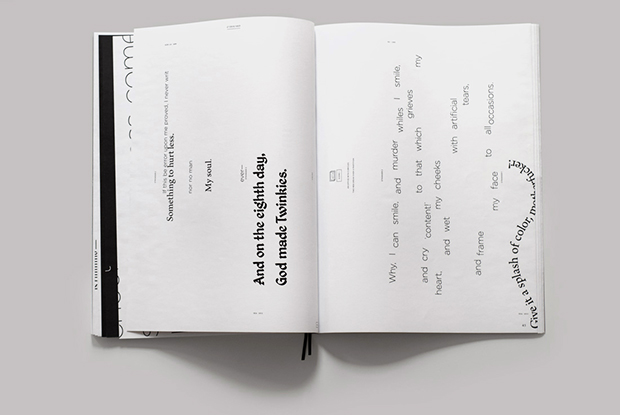 If this be error upon me proved, I never writ,
Something to hurt less.
nor no man
My soul.
ever—
And on the eighth day,
God made Twinkies.
Why, I can smile, and murder whiles I smile,
and cry 'content!' to that which grieves my
heart, and wet my cheeks with artificial tears,
and frame my face to all occasions.
Give it a splash of color,